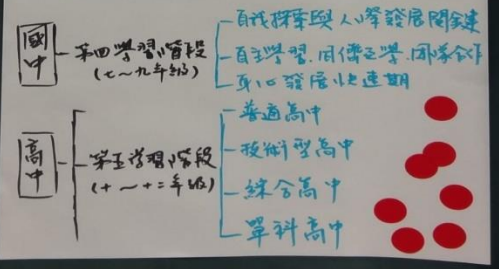 國中
第四學習階段
(七～九年級)
自我探索與人格發展關鍵
自主學習、同儕互學、團隊合作
身心發展快速期
高中
第五學習階段
(十～十二年級)
普通高中
技術型高中
綜合高中
單科高中